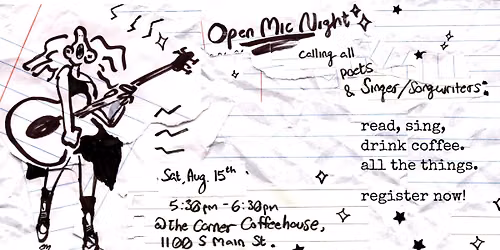 Open Mic Night
calling all
poets
& Singer/Songwriters:
read, sing,
drink coffee.
all the things.
register now!
Sat, Aug. 15th.
5:30pm - 6:30pm
@The Corner Coffeehouse,
1100 S Main St.